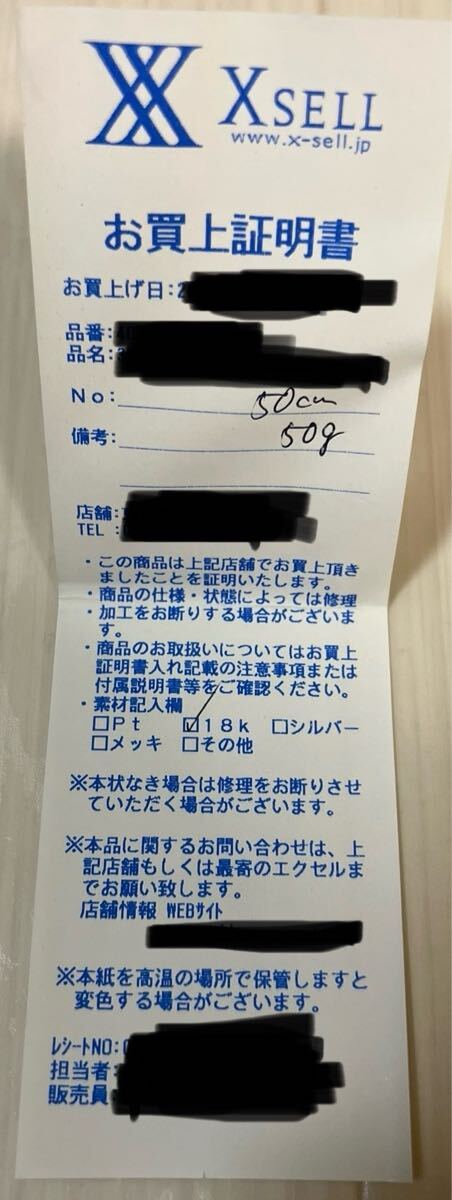 XSELL
www.x-sell.jp
お買上証明書
お買上げ日:2
品番:
品名:
No: 50cm
備考: 50g
店舗:
TEL :
・この商品は上記店舗でお買上頂き
ましたことを証明いたします。
・商品の仕様・状態によっては修理
・加工をお断りする場合がございま
す。
・商品のお取扱いについてはお買上
証明書入れ記載の注意事項または
付属説明書等をご確認ください。
・素材記入欄
□Pt ☑18k □シルバー
□メッキ □その他
※本状なき場合は修理をお断りさせ
ていただく場合がございます。
※本品に関するお問い合わせは、上
記店舗もしくは最寄のエクセルま
でお願い致します。
店舗情報 WEBサイト
※本紙を高温の場所で保管しますと
変色する場合がございます。
レシートNO:
担当者:
販売員